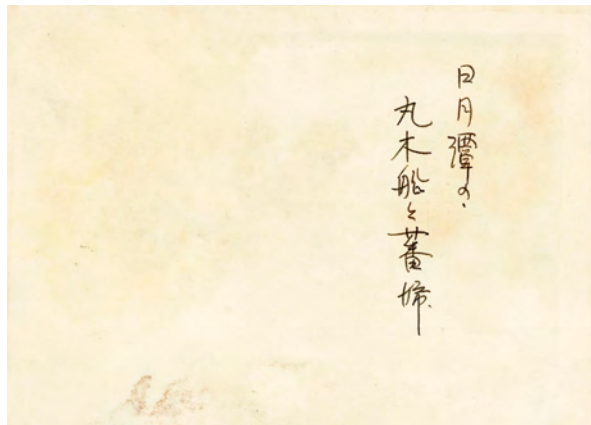 日月潭の、
丸木船と蕃婦、